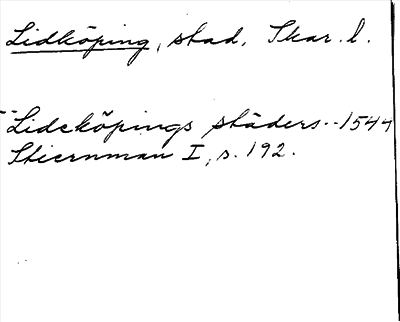 Lidköping, stad. Skar. l.
--Lidcköpings städers--1544
Stiernman I, s. 192.